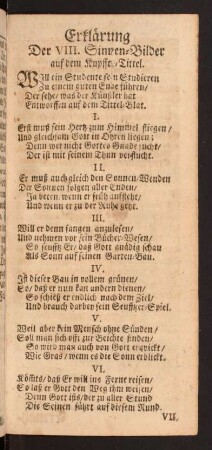 Erklärung
Der VIII. Sinnen-Bilder
auf dem Kupffer-Tittel.
Will ein Studente sein Studieren
Zu einem guten Ende führen/
Der sehe/ was der Künstler hat
Entworffen auf dem Tittel-Blat.
I.
Erst muß sein Hertz zum Himmel fliegen/
Und gleichsam Gott in Ohren liegen:
Denn wer nicht Gottes Gnade sucht/
Der ist mit seinem Thun verflucht.
II.
Er muß auch gleich den Sonnen-Wenden
Der Sonnen folgen aller Enden/
Ja beten wenn er früh aufsteht/
Und wenn er zu der Ruhe geht.
III.
Will er denn fangen anzulesen/
Und nehmen vor sein Bücher-Wesen/
So seuffz Er/ daß Gott gnädig schau
Als Sonn auf seinen Garten-Bau.
IV.
Ist dieser Bau in vollem grünen/
So/ daß er nun kan andern dienen/
So schieß er endlich nach dem Ziel/
Und brauch darbey sein Seufftzer-Spiel.
V.
Weil aber kein Mensch ohne Sünden/
Soll man sich offt zur Beichte finden/
So wird man auch von Gott erqvickt/
Wie Gras/ wenn es die Sonn erblickt.
VI.
Kömmts/ daß Er will ins Ferne reisen/
So laß er Gott den Weg ihm weisen/
Denn Gott ists/ der zu aller Stand
Die Seinen führt auf diesem Rund.
VII.